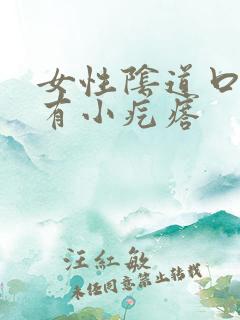 女性陰道口
有小疙瘩
汪紅敏
未经同意禁止转载